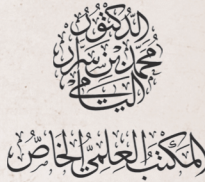 الدكتور
محمد بن سرار
اليامي
المكتب العلمي الخاص